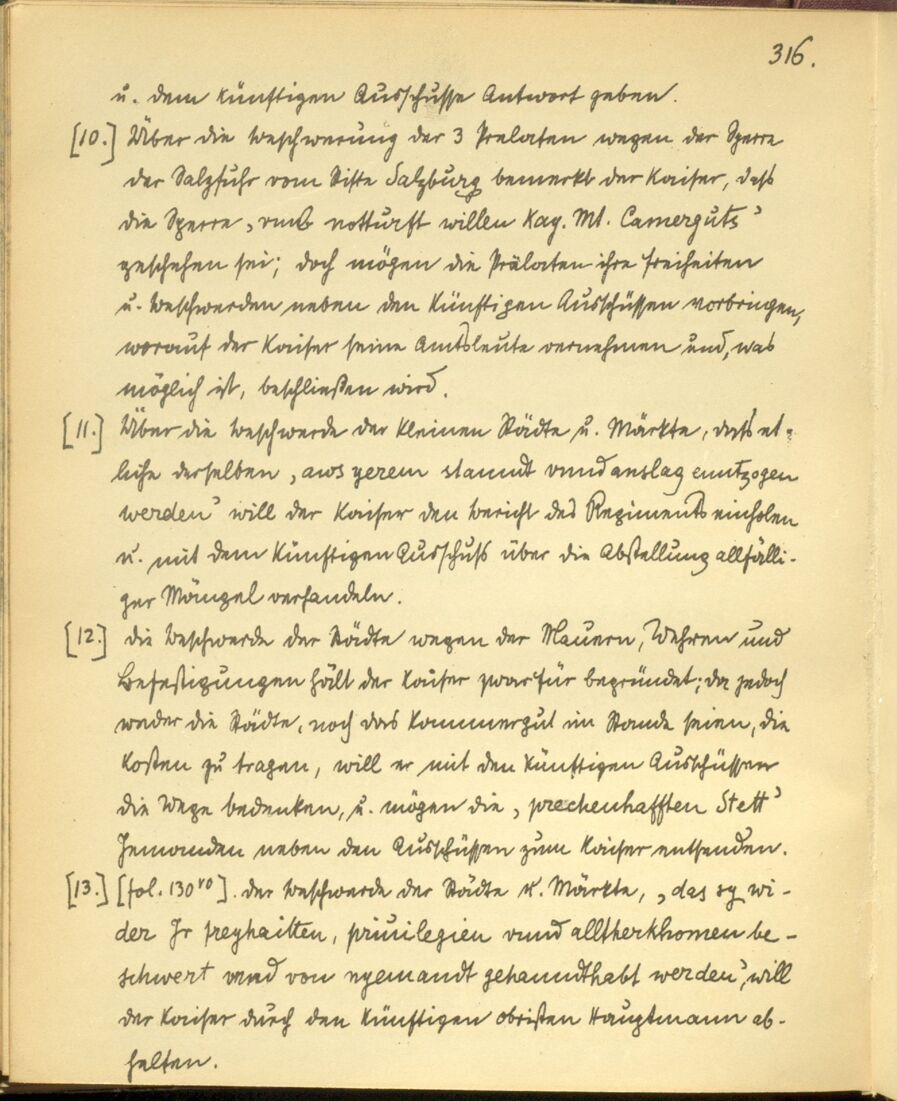 316.
u. dem künftigen Ausschusse Antwort geben.
[10.] Über die Beschwerung der 3 Prelaten wegen der Sperre
der Salzfuhr vom Stifte Salzburg bemerkt der Kaiser, dass
die Sperre ‚vmb notturft willen Kay. Mt. Camerguts’
geschehen sei; doch mögen die Prälaten ihre Freiheiten
u. Beschwerden neben den künftigen Ausschüssen vorbringen,
worauf der Kaiser seine Amtsleute vernehmen und, was
möglich ist, beschließen wird.
[11.] Über die Beschwerde der kleinen Städte u. Märkte, dass et-
liche derselben ‚aws yerem stanndt vnnd anslag enntzogen
werden’ will der Kaiser den Bericht des Regiments einholen
u. mit dem künftigen Ausschuss über die Abstellung allfälli-
ger Mängel verhandeln.
[12.] die Beschwerde der Städte wegen der Mauern, Wehren und
Befestigungen hält der Kaiser zwar für begründet; da jedoch
weder die Städte, noch das Kammergut im Stande seien, die
Kosten zu tragen, will er mit den künftigen Ausschüssen
die Wege bedenken, u. mögen die ‚prechenhafften Stett’
Jemanden neben den Ausschüssen zum Kaiser entsenden.
[13.] [fol. 130ᵛᵒ]. der Beschwerde der Städte u. Märkte, ‚das sy wi-
der Ir freyhaitten, priuilegien vnnd alltherkhomen be-
schwert vnnd von nyemandt gehanndthabt werden’, will
der Kaiser durch den künftigen obristen Hauptmann ab-
helfen.